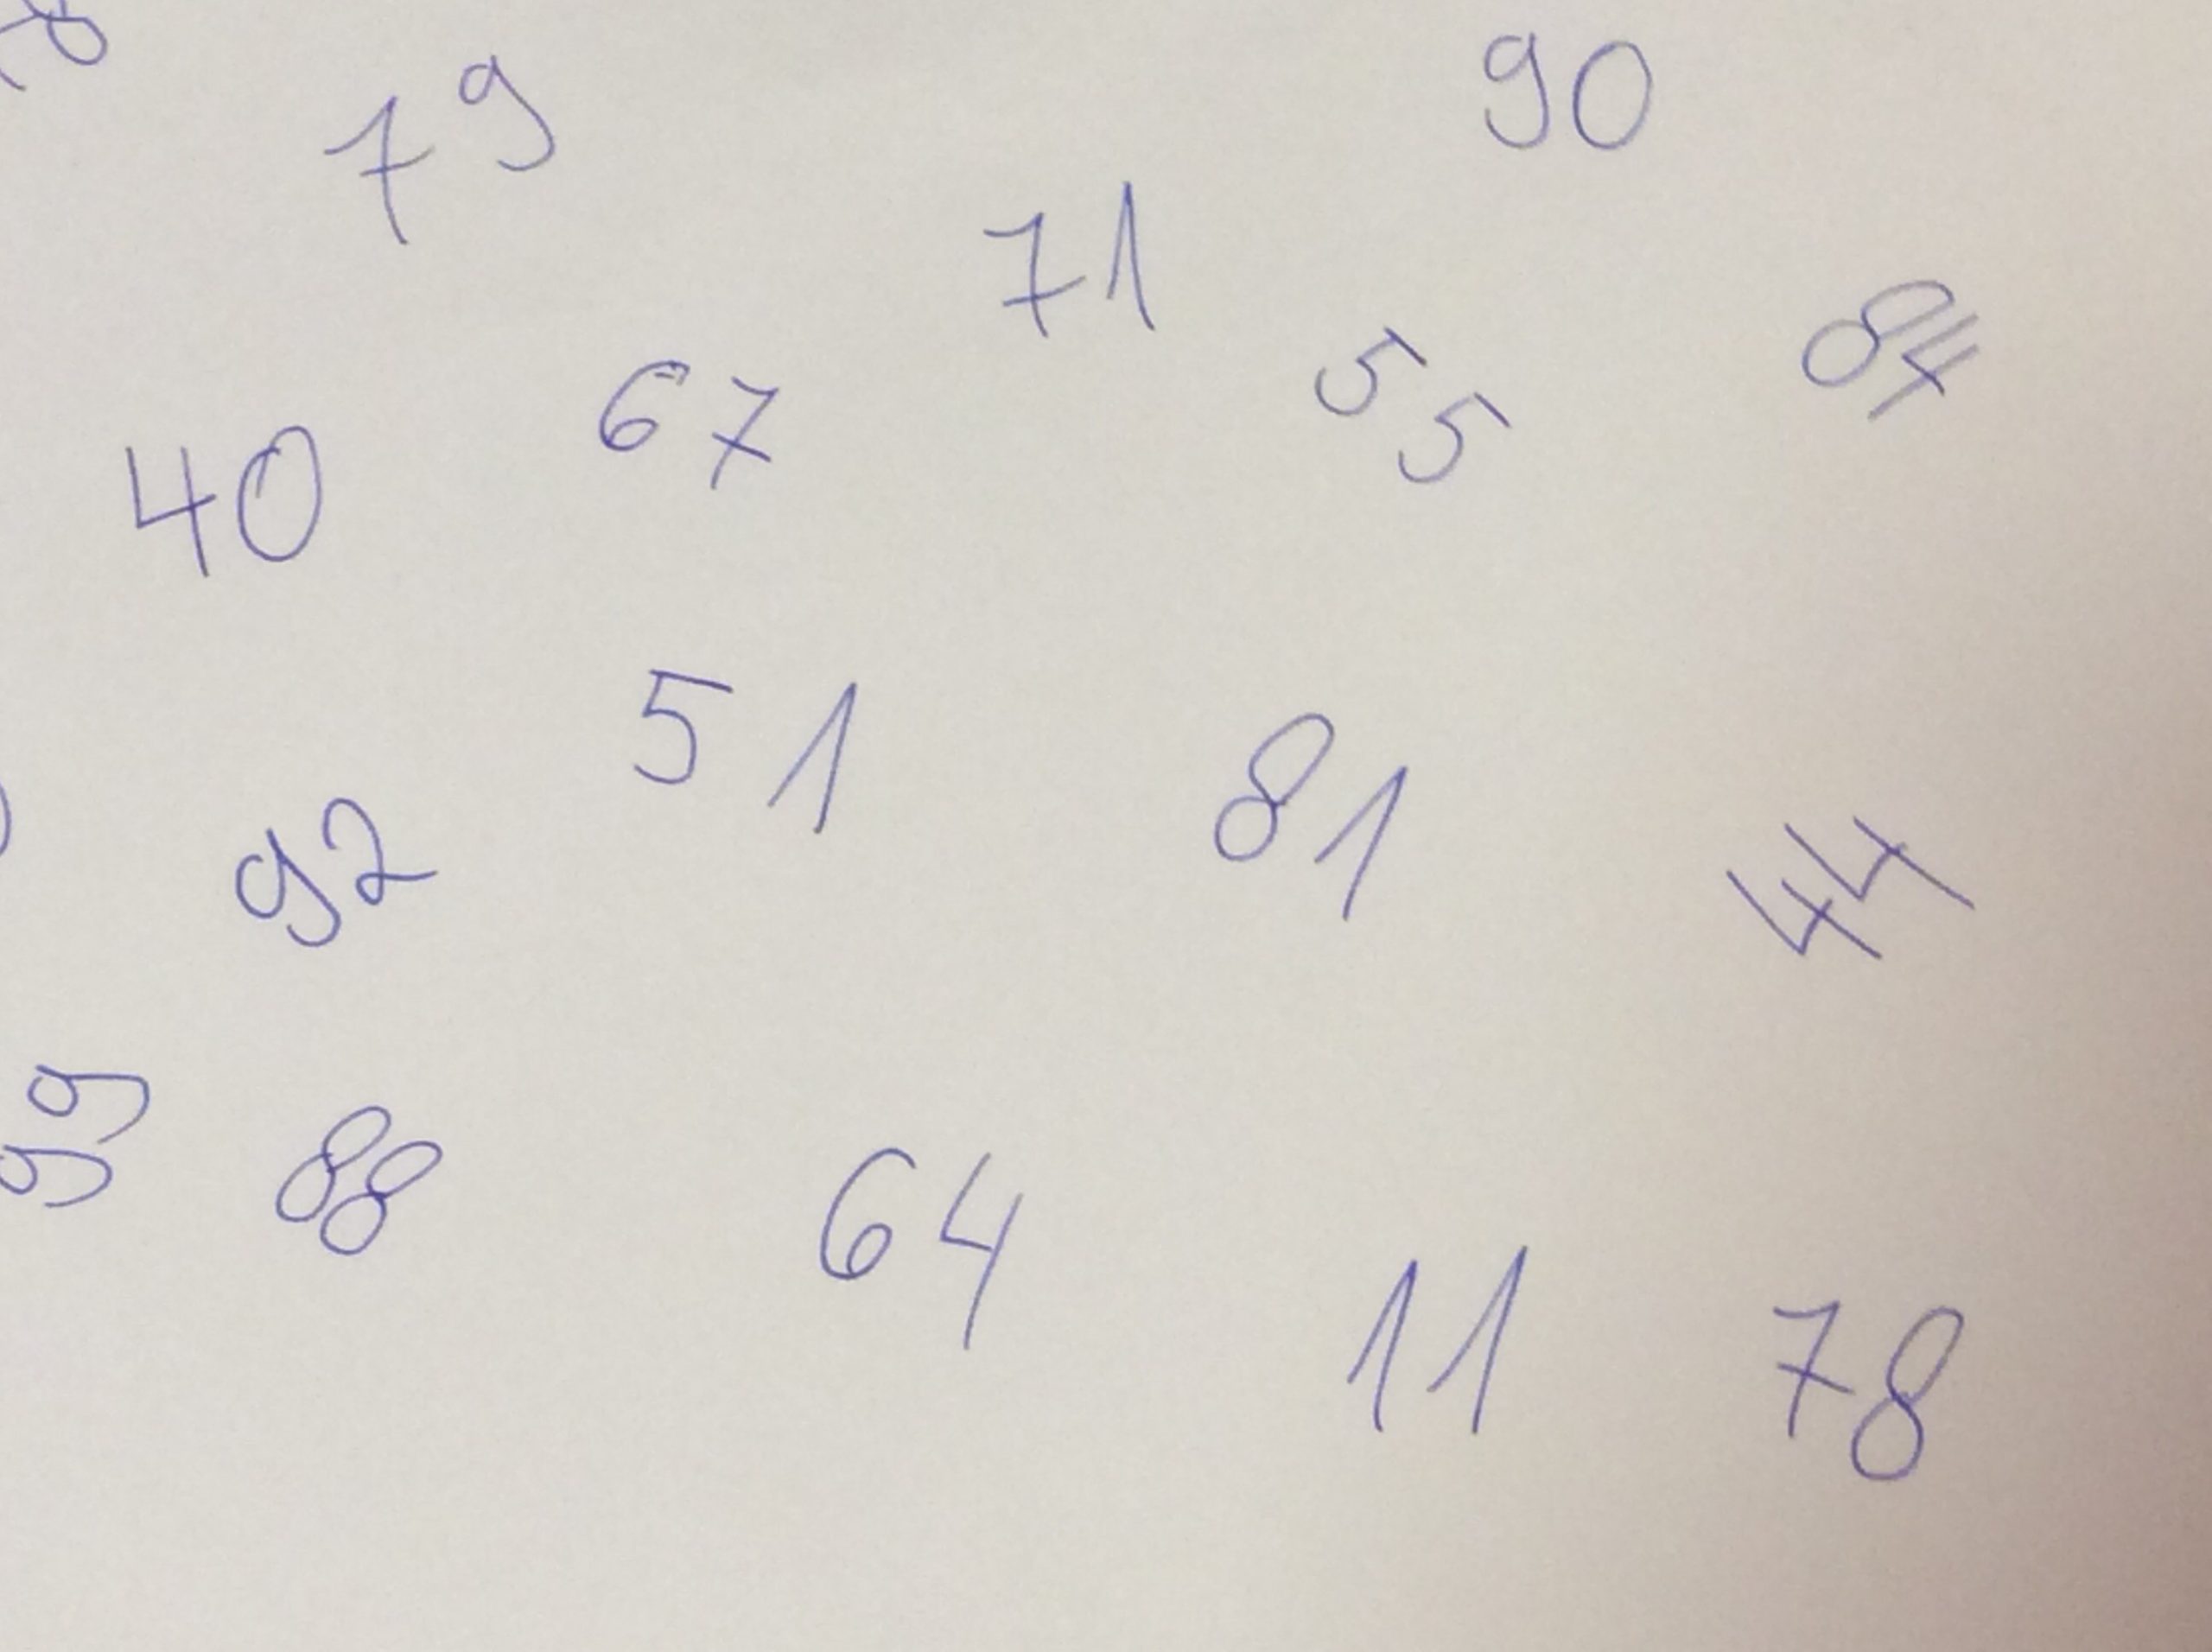 79
90
71
84
55
67
40
51
81
92
44
99
88
64
11
78